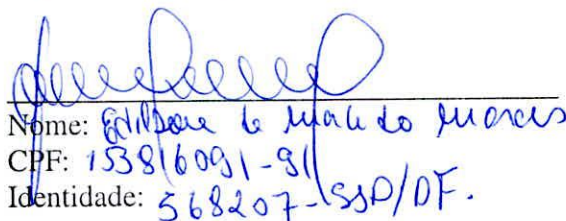 Nome: Edilson de Macedo Morais
CPF: 153816091-91
Identidade: 568207-SSP/DF.